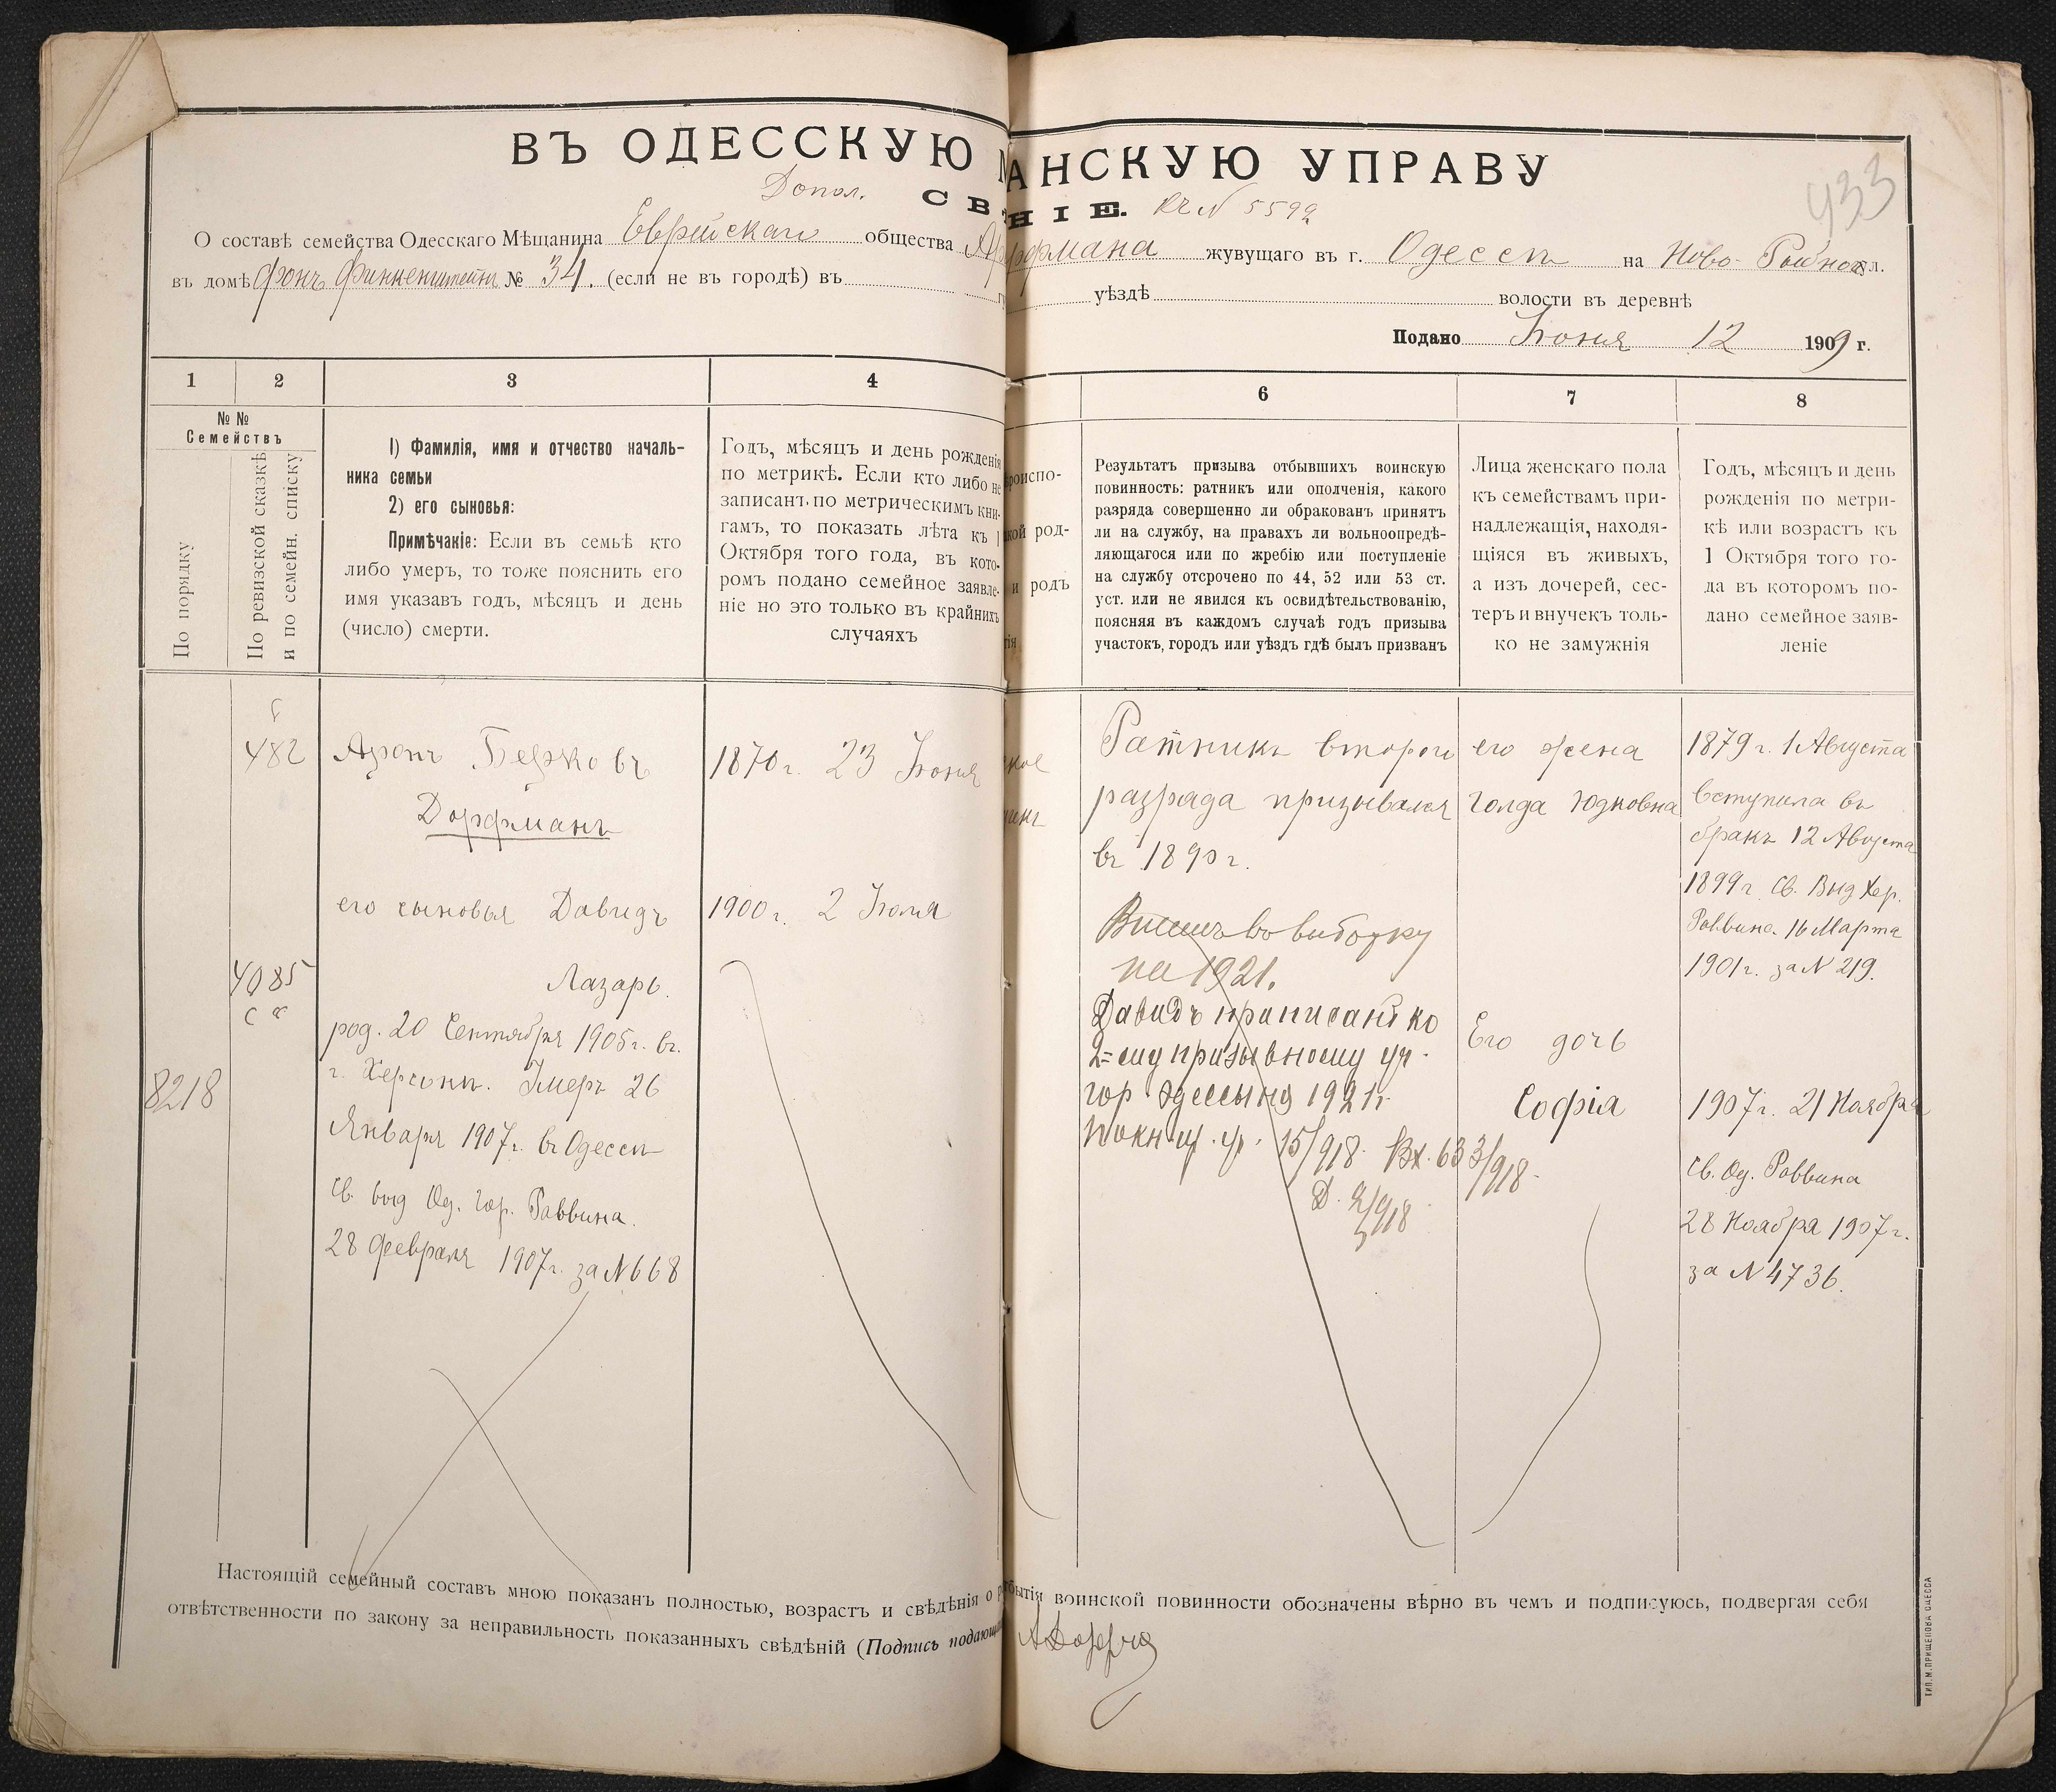 ВЪ ОДЕССКУЮ МАНСКУЮ УПРАВУ
933
Допол.
СВ НІЕ. № 5592
О составѣ семейства Одесскаго Мѣщанина Еврейскаго общества фмана жувущаго въ г. Одессѣ на Ново-Рыбной ул.
въ домѣ фонъ Финкенштейнъ № 34. (если не въ городѣ) въ уѣздѣ волости въ деревнѣ
Подано Іюня 12 1909 г.
1 2 3 4 6 7 8
№ №
Семействъ
По порядку
По ревизской сказкѣ
и по семейн. списку
1) Фамилія, имя и отчество началь-
ника семьи
2) его сыновья:
Примѣчаніе: Если въ семьѣ кто
либо умеръ, то тоже пояснить его
имя указавъ годъ, мѣсяцъ и день
(число) смерти.
Годъ, мѣсяцъ и день рожденія
по метрикѣ. Если кто либо не
записанъ по метрическимъ кни-
гамъ, то показать лѣта къ 1
Октября того года, въ кото-
ромъ подано семейное заявле-
ніе но это только въ крайнихъ
случаяхъ
роиспо-
кой род-
и родъ
тія
Результатъ призыва отбывшихъ воинскую
повинность: ратникъ или ополченія, какого
разряда совершенно ли обракованъ принятъ
ли на службу, на правахъ ли вольноопредѣ-
ляющагося или по жребію или поступленіе
на службу отсрочено по 44, 52 или 53 ст.
уст. или не явился къ освидѣтельствованію,
поясняя въ каждомъ случаѣ годъ призыва
участокъ, городъ или уѣздъ гдѣ былъ призванъ
Лица женскаго пола
къ семействамъ при-
надлежащія, находя-
щіяся въ живыхъ,
а изъ дочерей, сес-
теръ и внучекъ толь-
ко не замужнія
Годъ, мѣсяцъ и день
рожденія по метри-
кѣ или возрастъ къ
1 Октября того го-
да въ которомъ по-
дано семейное заяв-
леніе
482
4085
8218
Аронъ Берковъ
Дорфманъ
его сыновья Давидъ
Лазарь.
род. 20 Сентября 1905 г. въ
г. Херсонѣ. Умеръ 26
Января 1907 г. въ Одессѣ
Св. выд Од. Гор. Раввина.
28 Февраля 1907 г. за № 668
1870 г. 23 Іюня
1900 г. 2 Іюля
Ратникъ второго
разряда призывался
въ 1890 г.
на 1921.
Давидъ приписанъ ко
2=ому призывному уч.
гор Одессы на 1921 г.
15/918. Вх. 633/918.
его жена
Голда Юдковна
Его дочь
Софія
1879 г. 1 Августа
вступила въ
бракъ 12 Августа
1899 г. Св. Выд Хер.
Раввина. 16 Марта
1901 г. за № 219.
1907 г. 21 Ноября
Св. Од. Раввина
28 Ноября 1907 г.
за № 4736.
Настоящій семейный составъ мною показанъ полностью, возрастъ и свѣдѣнія о бытія воинской повинности обозначены вѣрно въ чемъ и подписуюсь, подвергая себя
отвѣтственности по закону за неправильность показанныхъ свѣдѣній (Подпись подающ
ТИП. М. ПРИЩЕПОВА ОДЕССА